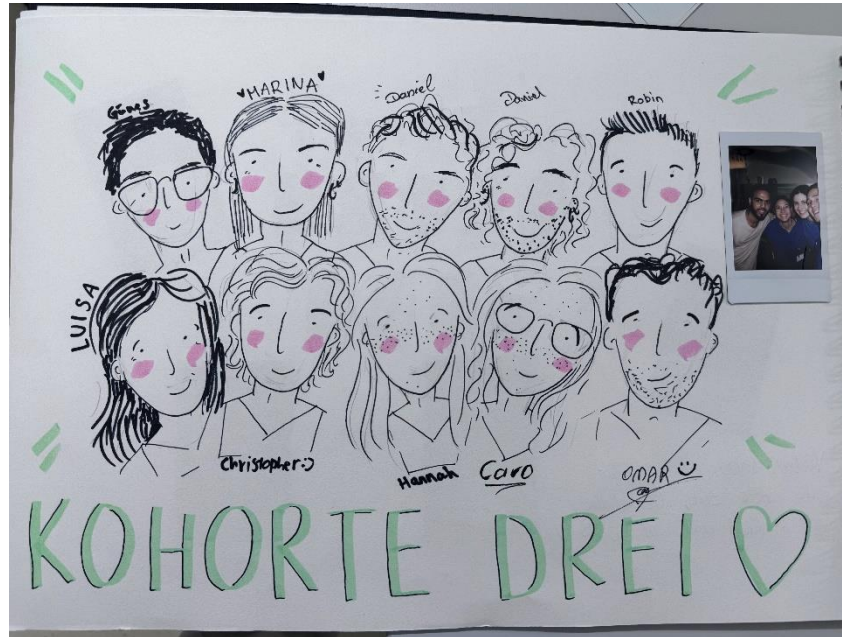 Günes
MARINA
Daniel
Daniel
Robin
LUISA
Christopher:)
Hannah
Caro
OMAR
KOHORTE DREI